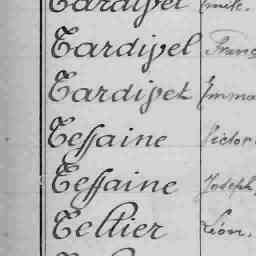 Tardivel Emile.
Tardivel Franç
Tardivel Emma
Tessaine Victor
Tessaine Joseph
Teltier Léon.